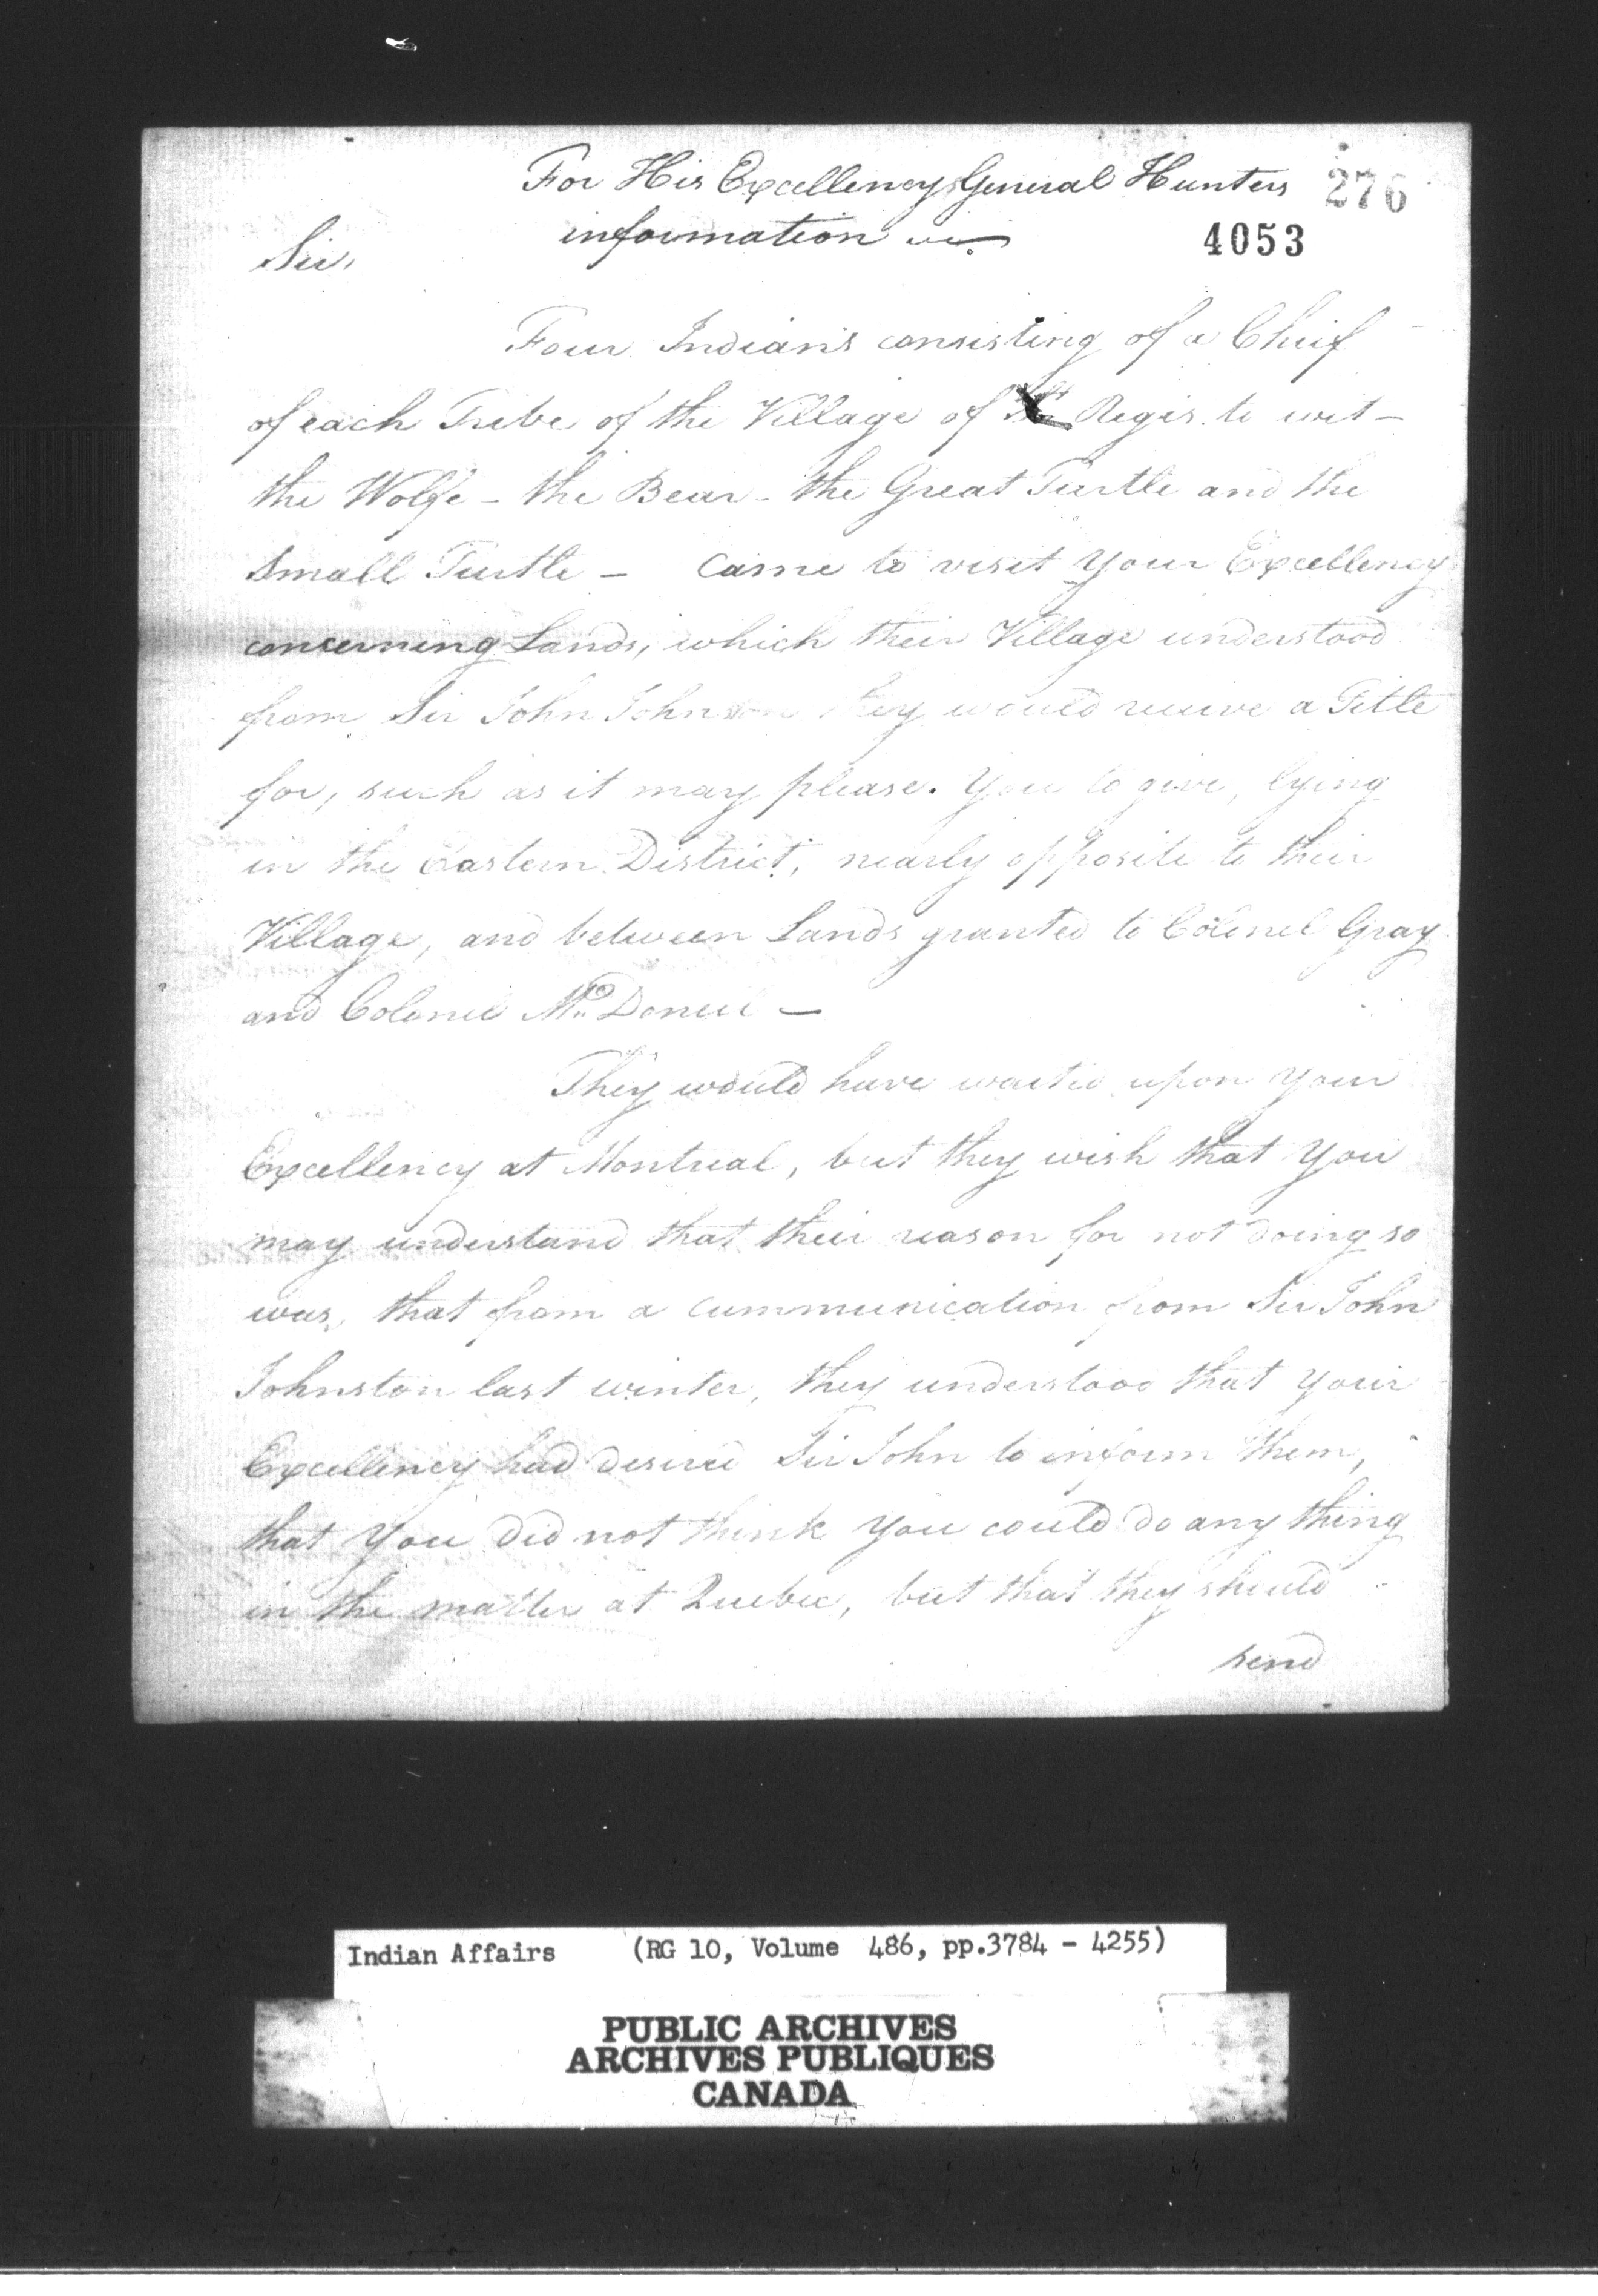 For His Excellency General Hunters 276
information
4053
Sir,
Four Indians consisting of a Chief
of each Tribe of the Village of St Regis. to wit –
the Wolfe – the Bear – the Great Turtle and the
Small Turtle – Came to visit Your Excellency
concerning Lands, which their Village understood
from Sir John Johnson they would receive a Title
for, such as it may please. You to give, lying
in the Eastern District, nearly opposite to their
Village, and between Lands granted to Colonel Gray
and Colonel McDonell –
They would have waited upon Your
Excellency at Montreal, but they wish that You
may understand that their reason for not doing so
was, that from a communication from Sir John
Johnston last winter, they understood that Your
Excellency had desired Sir John to inform them,
that You did not think You could do any thing
in the matter at Quebec, but that they should
send
Indian Affairs (RG 10, Volume 486, pp.3784 - 4255)
PUBLIC ARCHIVES
ARCHIVES PUBLIQUES
CANADA